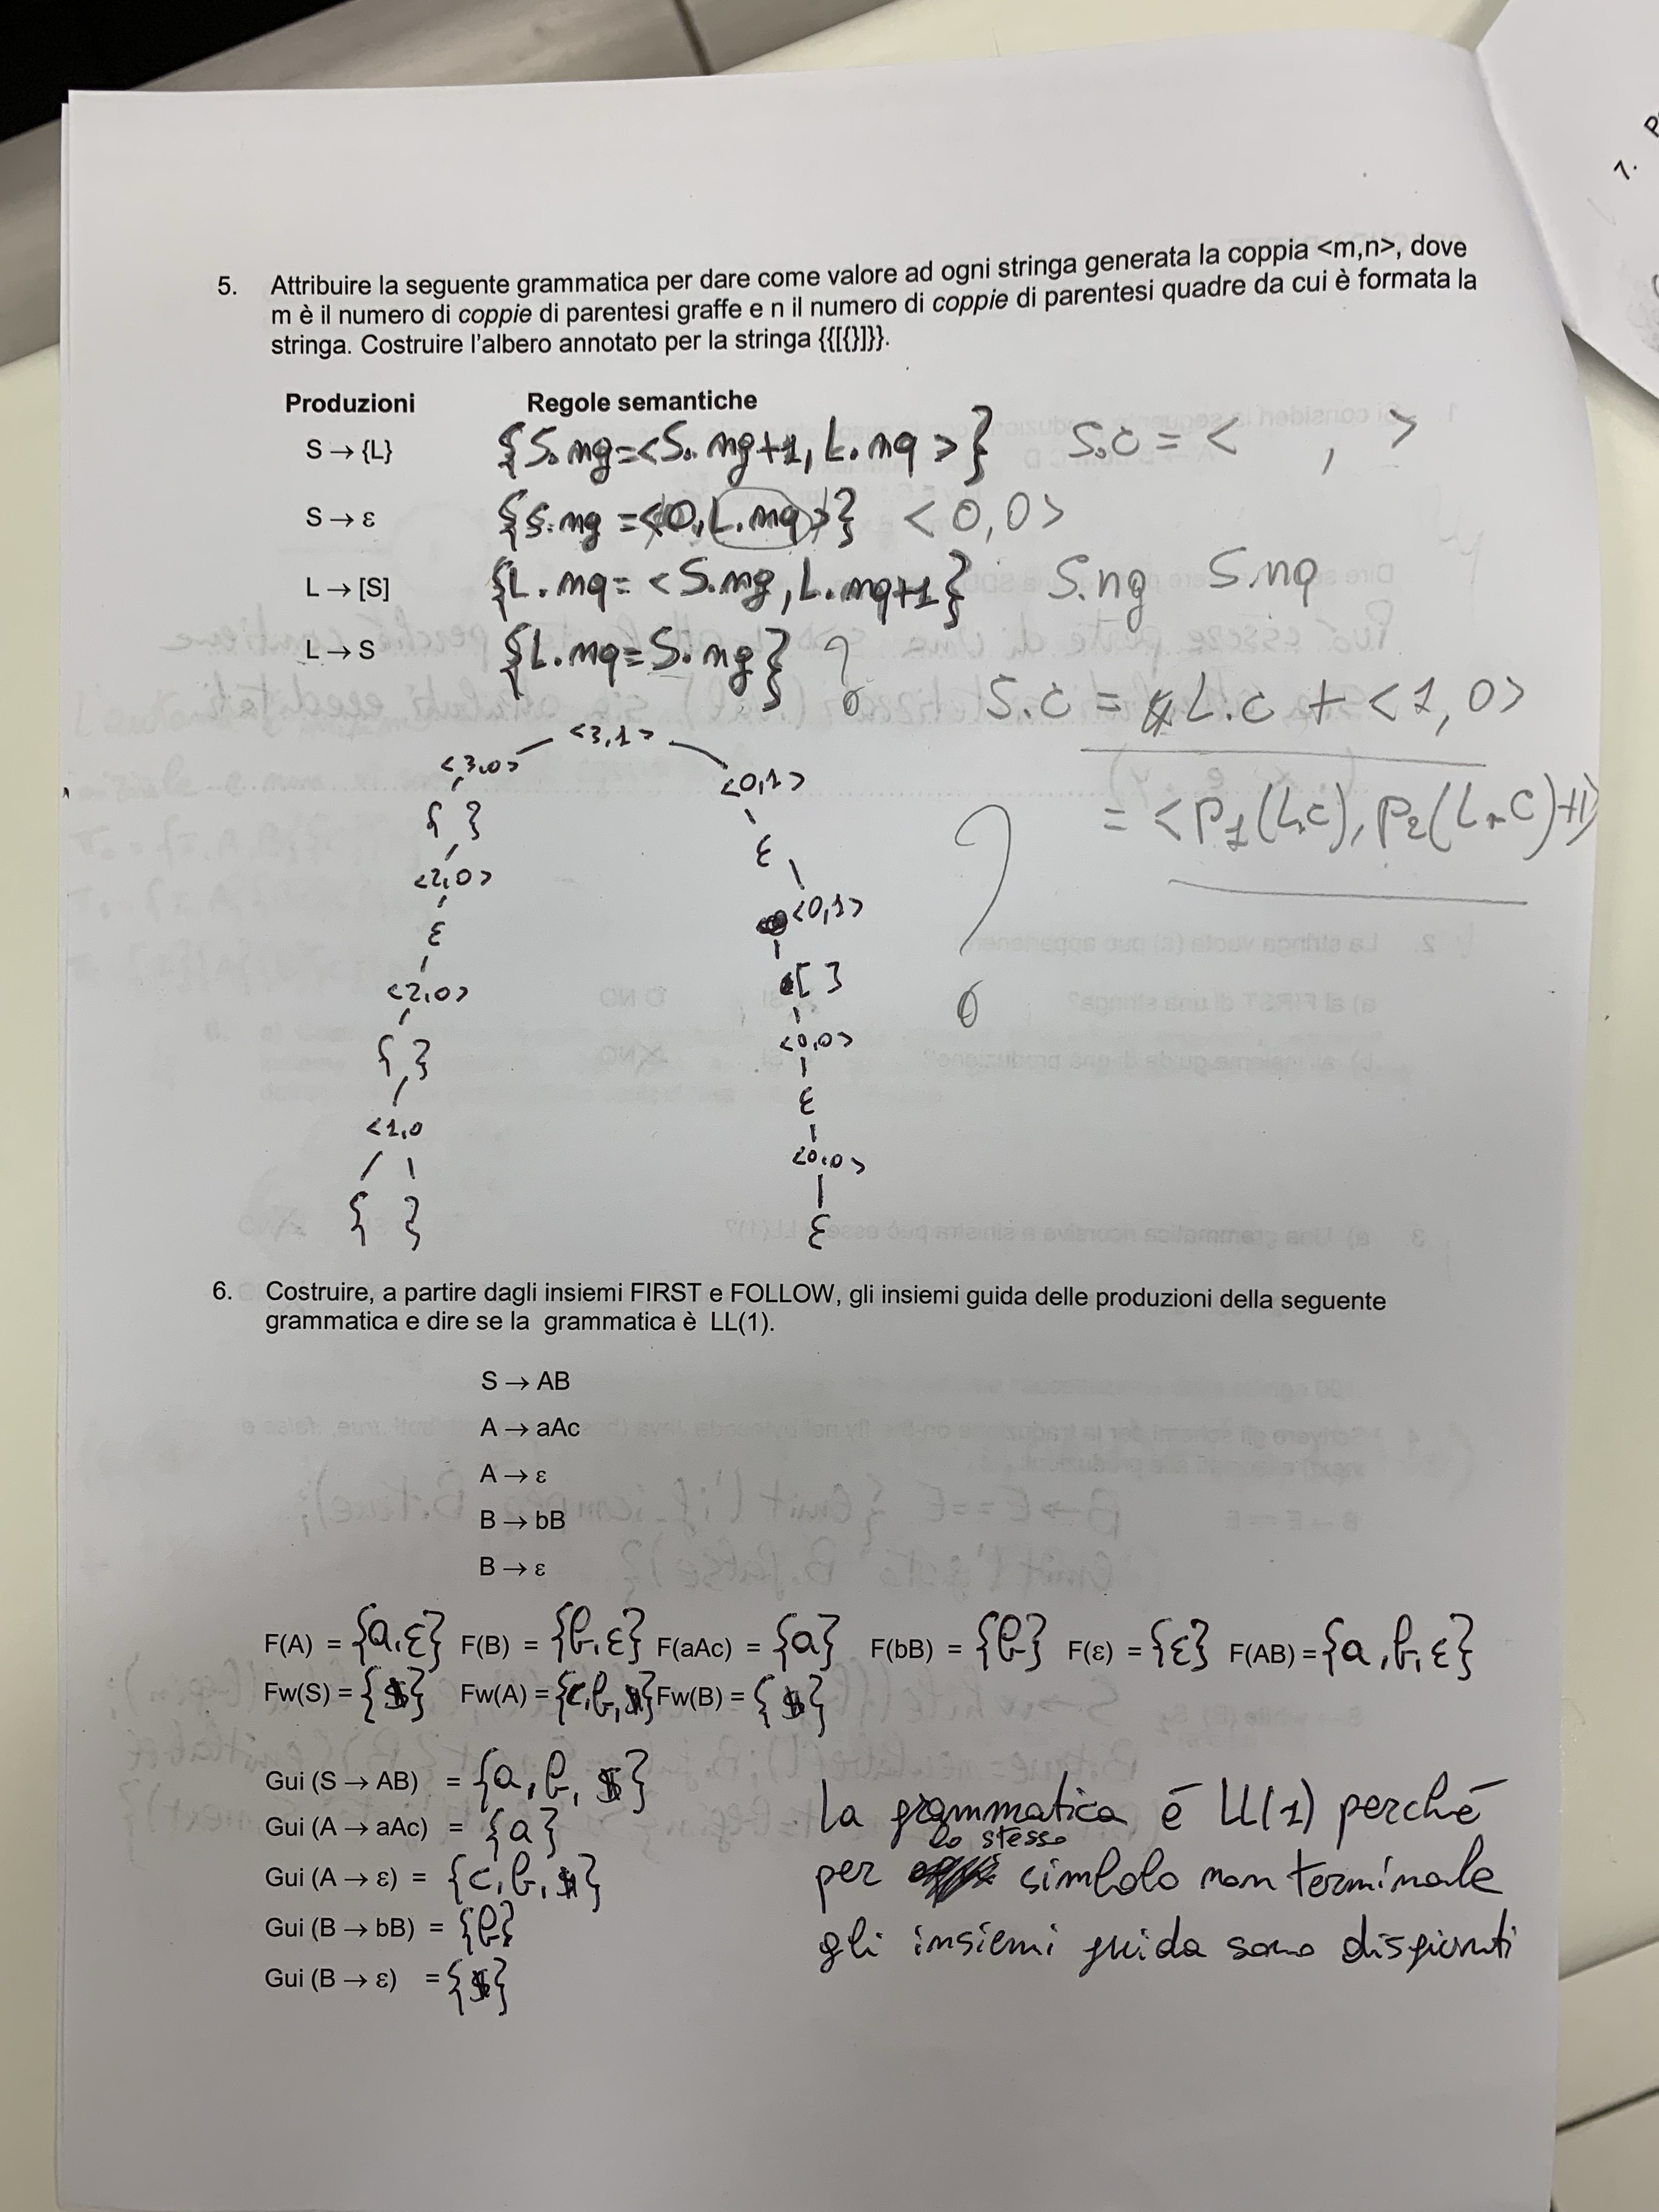 7. P
5. Attribuire la seguente grammatica per dare come valore ad ogni stringa generata la coppia <m,n>, dove
m è il numero di coppie di parentesi graffe e n il numero di coppie di parentesi quadre da cui è formata la
stringa. Costruire l'albero annotato per la stringa {{[{}]}}.
Produzioni Regole semantiche
S → {L} {S.mg=<S.mg+1, L.mq>} S.c = < , >
S → ε {S.mg=<0,L.mq>} <0,0>
L → [S] {L.mq= <S.mg, L.mq+1} S.ng S.nq
L → S {L.mq=S.mg} ?
S.c = L.c + <1,0>
<3,1>
<3,0> <0,1>
= <P1(L.c), P2(L.C)+1>
{ } ε
<2,0> <0,1>
ε [ ] ?
<2,0> <0,0>
{ } ε
<1,0 <0,0>
{ } ε
6. Costruire, a partire dagli insiemi FIRST e FOLLOW, gli insiemi guida delle produzioni della seguente
grammatica e dire se la grammatica è LL(1).
S → AB
A → aAc
A → ε
B → bB
B → ε
F(A) = {a,ε} F(B) = {b,ε} F(aAc) = {a} F(bB) = {b} F(ε) = {ε} F(AB) = {a,b,ε}
Fw(S) = {$} Fw(A) = {c,b,$} Fw(B) = {$}
Gui (S → AB) = {a,b,$}
Gui (A → aAc) = {a}
Gui (A → ε) = {c,b,$}
Gui (B → bB) = {b}
Gui (B → ε) = {$}
La grammatica è LL(1) perché
per lo stesso simbolo non terminale
gli insiemi guida sono disgiunti